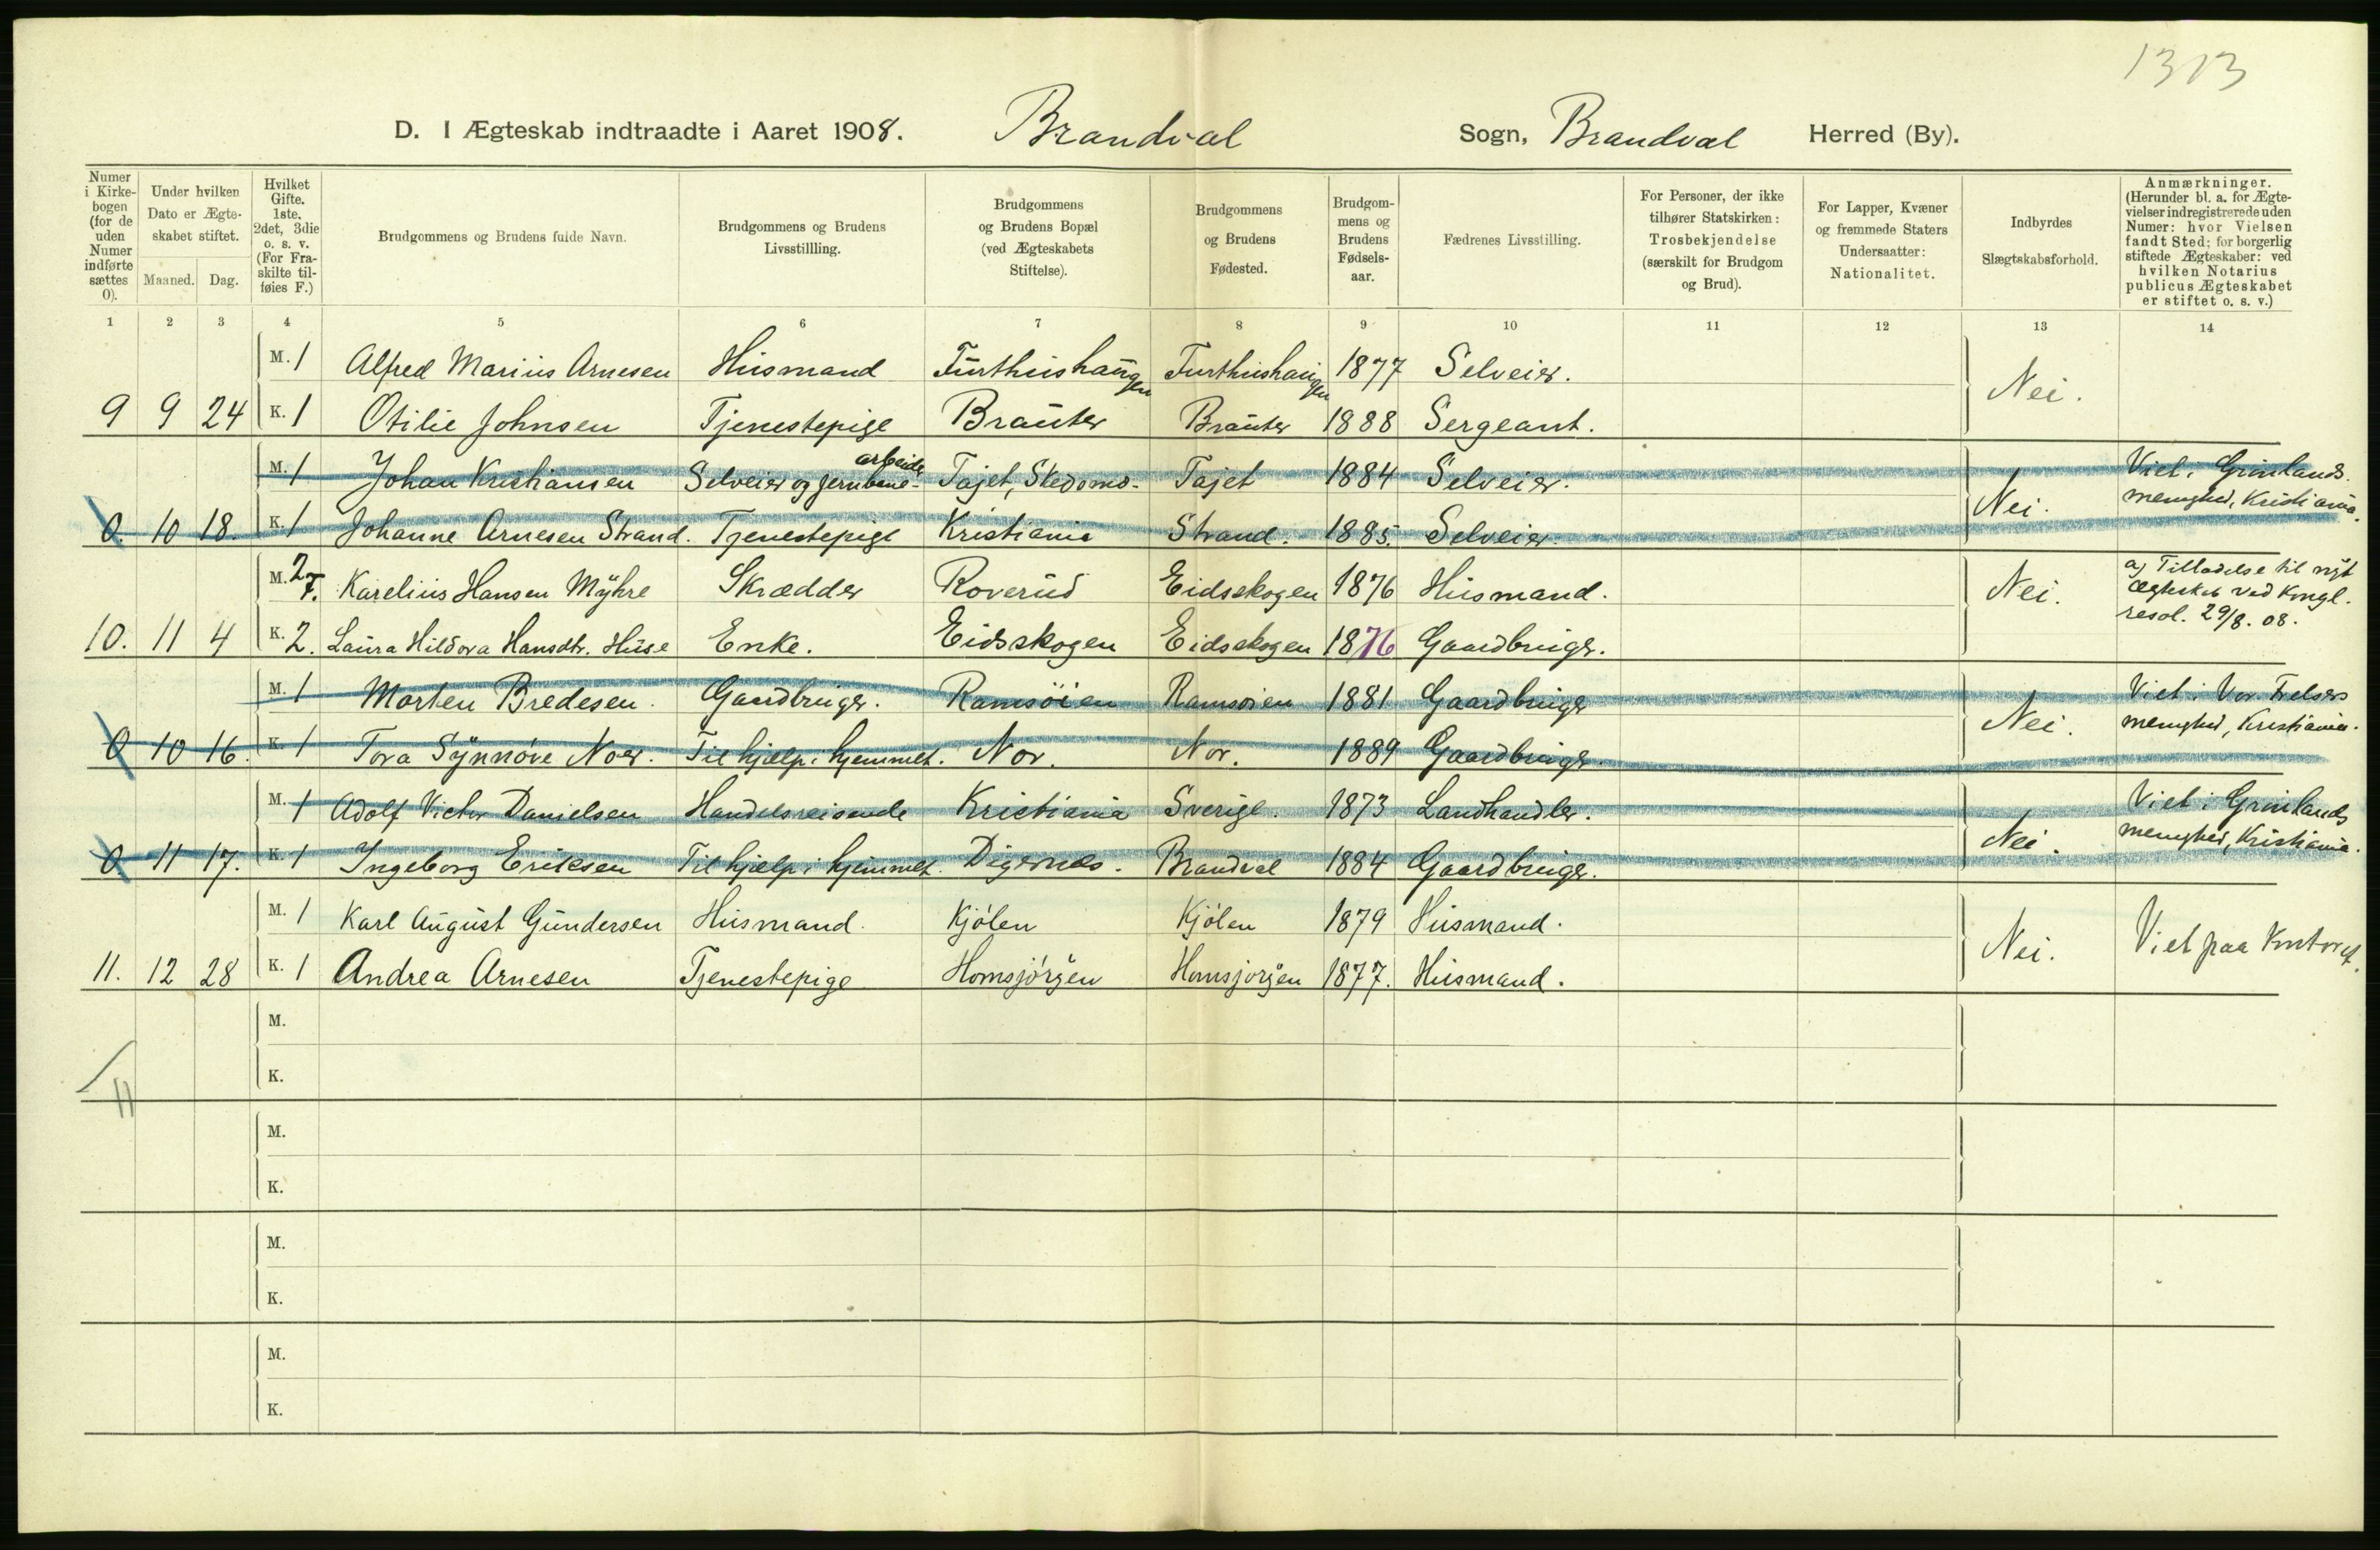 1313
D. I Ægteskab indtraadte i Aaret 1908. Brandval Sogn, Brandval Herred (By).
Numer i Kirkebogen (for de uden Numer indførte sættes 0).
Under hvilken Dato er Ægteskabet stiftet.
Maaned. Dag.
Hvilket Gifte. 1ste. 2det, 3die o. s. v. (For Fraskilte tilføies F.)
Brudgommens og Brudens fulde Navn.
Brudgommens og Brudens Livsstillling.
Brudgommens og Brudens Bopæl (ved Ægteskabets Stiftelse).
Brudgommens og Brudens Fødested.
Brudgommens og Brudens Fødselsaar.
Fædrenes Livsstilling.
For Personer, der ikke tilhører Statskirken: Trosbekjendelse (særskilt for Brudgom og Brud).
For Lapper, Kvæner og fremmede Staters Undersaatter: Nationalitet.
Indbyrdes Slægtskabsforhold.
Anmærkninger. (Herunder bl. a. for Ægtevielser indregistrerede uden Numer: hvor Vielsen fandt Sted; for borgerlig stiftede Ægteskaber: ved hvilken Notarius publicus Ægteskabet er stiftet o. s. v.)
1 2 3 4 5 6 7 8 9 10 11 12 13 14
M. 1 Alfred Marius Arnesen Husmand Furthushaugen Furthushaugen 1877 Selveier. Nei.
9 9 24 K. 1 Otilie Johnsen Tjenestepige Brauter Brauter 1888 Sergeant.
M. 1 Johan Kristiansen Selveier og jernbanearbeider Tajet, Skedsmo Tajet 1884 Selveier. Nei. Viet i Grønlands menighed, Kristiania.
0 10 18. K. 1 Johanne Arnesen Strand. Tjenestepige Kristiania Strand. 1885. Selveier.
M. 2 F. Karelius Hansen Myhre Skrædder Roverud Eidsskogen 1876 Husmand. Nei. a) Tilladelse til nyt ægteskab ved Kongl. resol. 29/8. 08.
10. 11 4 K. 2. Laura Hildora Hansdtr. Huse Enke. Eidsskogen Eidsskogen 1876 Gaardbruger.
M. 1 Morten Bredesen. Gaardbruger. Ramsöien Ramsöien 1881 Gaardbruger Nei. Viet i Vor Frelsers menighed, Kristiania.
0 10 16. K. 1 Tora Synnöve Noer. Til hjælp i hjemmet. Nor. Nor. 1889 Gaardbruger.
M. 1 Adolf Victor Danielsen Handelsreisende Kristiania Sverige. 1873 Landhandler. Nei. Viet i Grønlands menighed, Kristiania.
0 11 17. K. 1 Ingeborg Eriksen Til hjælp i hjemmet. Digernes. Brandval 1884 Gaardbruger.
M. 1 Karl August Gundersen Husmand. Kjölen Kjölen 1879 Husmand. Nei. Viet paa Kontoret.
11. 12 28 K. 1 Andrea Arnesen Tjenestepige Homsjörgen Homsjorgen 1877. Husmand.
M.
K.
11
M.
K.
M.
K.
M.
K.